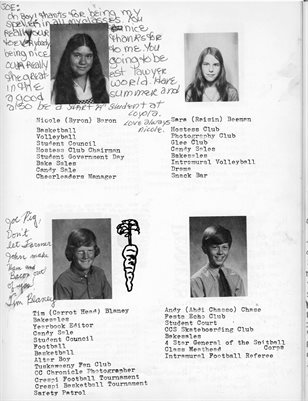 JOE:
oh boy! thanks for being my
speller in all my classes. You
really are nice
to everybody thanks for
being nice to me. You
are really going to be
the great est lawyer
in the world. Have
a good summer and
also be a student at
Loyola.
Love always
Nicole.
Nicole (Byron) Boron
Basketball
Volleyball
Student Council
Hostess Club Chairman
Student Government Day
Bake Sales
Candy Sale
Cheerleaders Manager
Sara (Raisin) Beeman
Hostess Club
Photography Club
Glee Club
Candy Sales
Bakesales
Intramural Volleyball
Drama
Snack Bar
Joe Pig,
Don't
let Farmer
John make
Ham and
Bacon out
of you!
Tim Blaney
Tim (Carrot Head) Blaney
Bakesales
Yearbook Editor
Candy Sale
Student Council
Football
Basketball
Altar Boy
Tuskaweeny Fan Club
CC Chronicle Photographer
Crespi Football Tournament
Crespi Basketball Tournament
Safety Patrol
Andy (Andi Chasso) Chase
Pests Echo Club
Student Court
CCS Skateboarding Club
Bakesales
4 Star General of the Spitball
Corps
Class Masthead
Intramural Football Referee